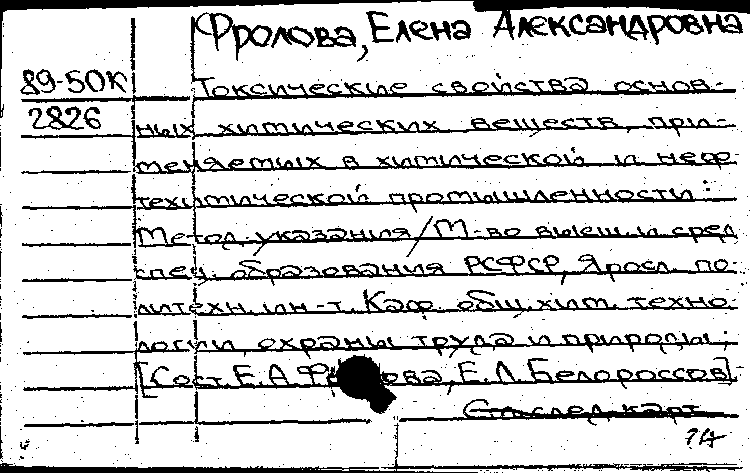 Фролова, Елена Александровна
89-50К Токсические свойства основ-
2826 ных химических веществ, при-
меняемых в химической и неф-
техимической промышленности:
Метод. указания/М-во высш. и сред.
спец. образования РСФСР, Яросл. по-
литехн. ин-т, Каф. общ. хим. техно-
логии, охраны труда и природы;
[Сост. Е.А. Фролова, Е.Л. Белороссов].-
См след. карт.